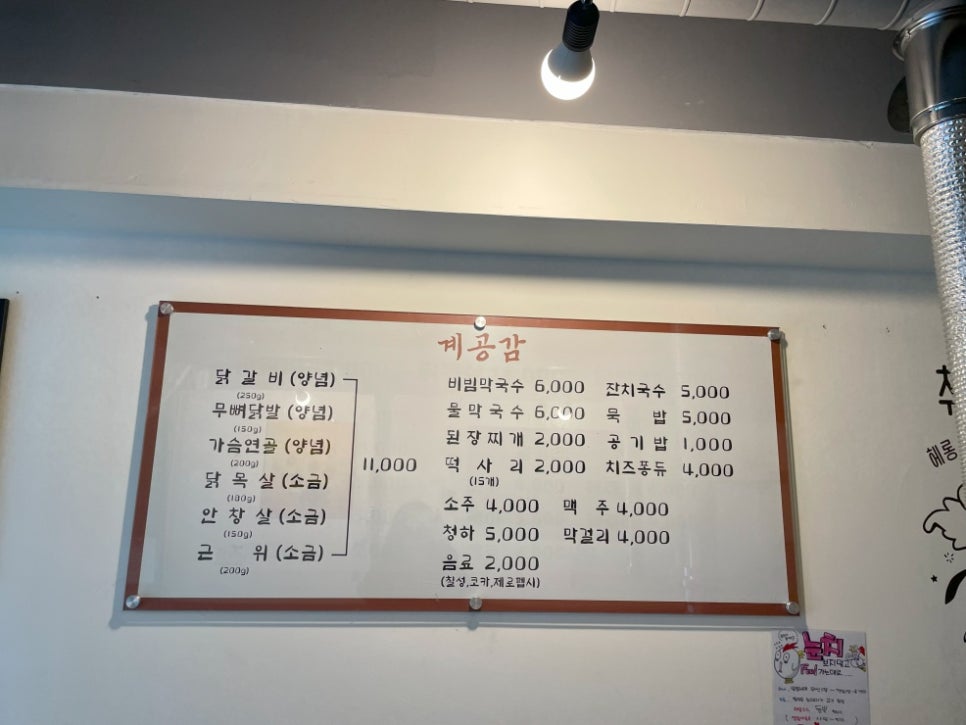 계공감
닭 갈 비 (양념)
(250g)
무뼈닭발 (양념)
(150g)
가슴연골 (양념)
(200g)
닭 목 살 (소금)
(180g)
안 창 살 (소금)
(150g)
근 위 (소금)
(200g)
11,000
비빔막국수 6,000 잔치국수 5,000
물막국수 6,000 묵 밥 5,000
된장찌개 2,000 공기밥 1,000
떡 사 리 2,000 치즈퐁듀 4,000
(15개)
소주 4,000 맥 주 4,000
청하 5,000 막걸리 4,000
음료 2,000
(칠성,코카,제로펩시)
눈치
보지말고
Feel 가는대로